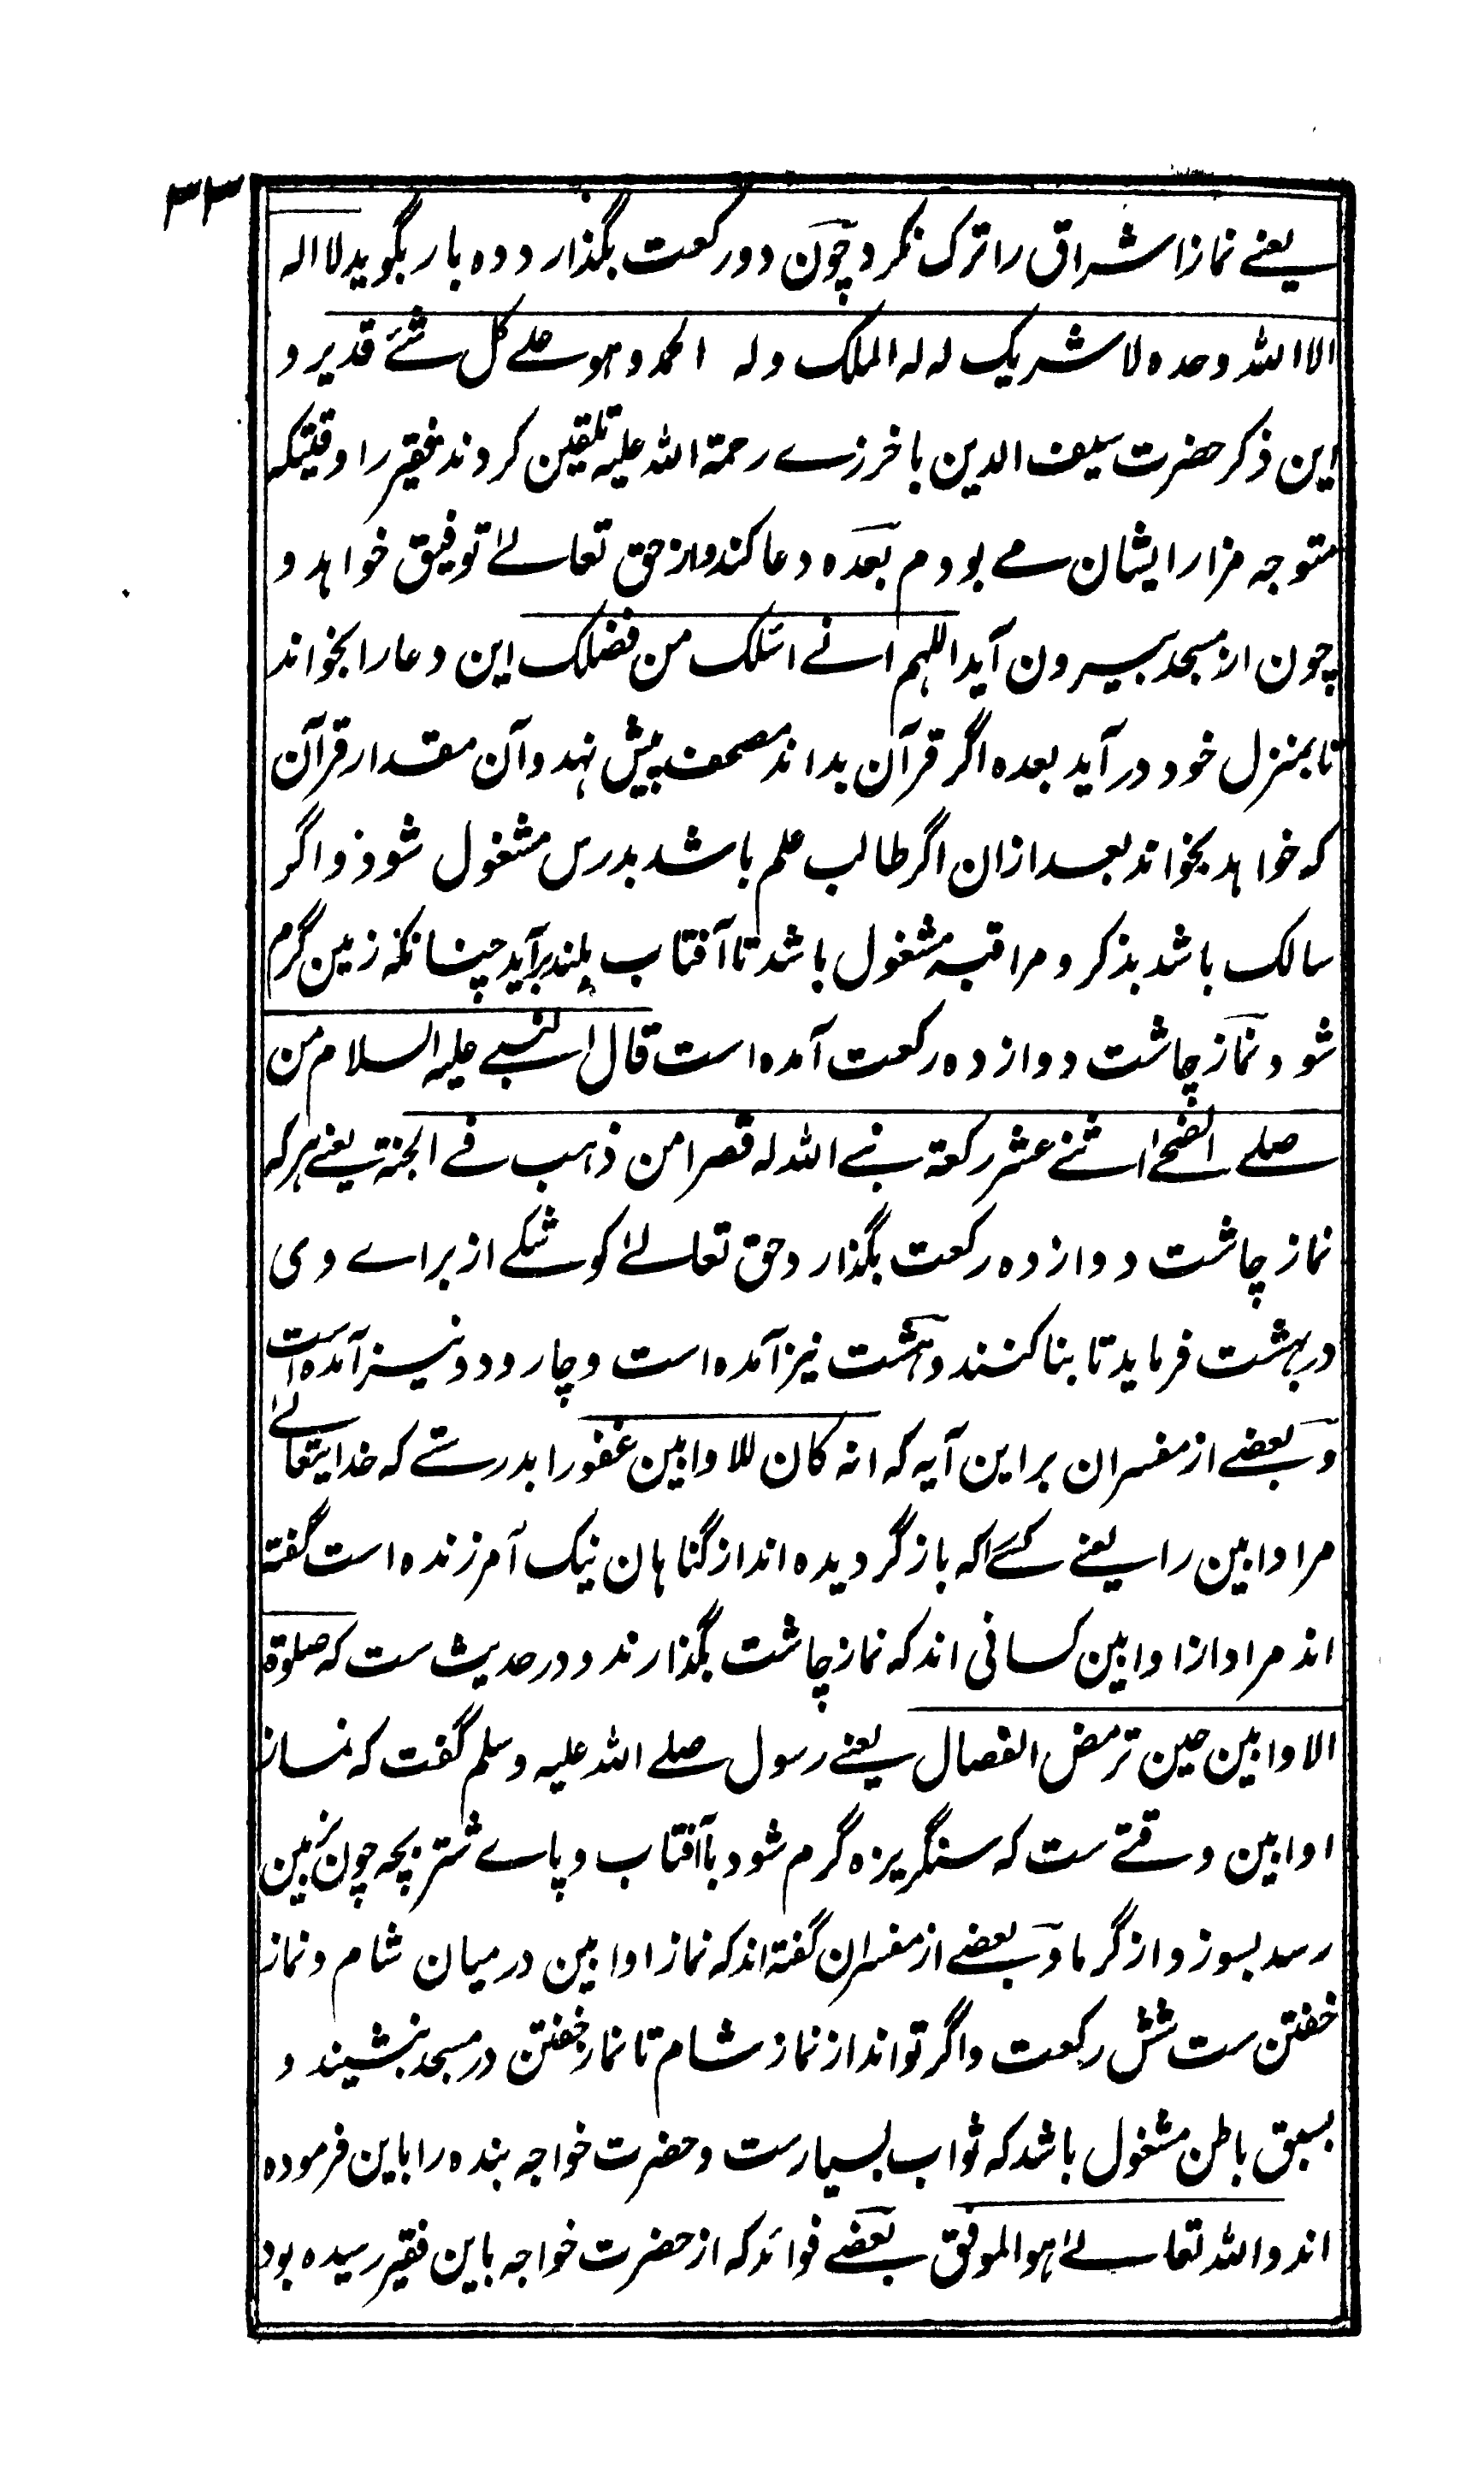 ۳۳
یعنے نماز اشراق را ترک نکرد چون دو رکعت بگذارد ده بار بگوید لا اله
الا الله وحده لا شریک له له الملک وله الحمد وهو علے کل شئے قدیر و
این ذکر حضرت سیف الدین باخرزے رحمة الله علیه تلقین کردند فقیر را وقتیکه
متوجه مزار ایشان مے بودم بعده دعا کند و از حق تعالےٰ توفیق خواهد و
چون از مسجد بیرون آید اللهم انے اسئلک من فضلک این دعا را بخواند
تا بمنزل خود در آید بعده اگر قرآن بداند مصحف پیش نهد و آن مقدار قرآن
که خواهد بخواند بعد ازان اگر طالب علم باشد بدرس مشغول شود و اگر
سالک باشد بذکر و مراقبه مشغول باشد تا آفتاب بلند برآید چنانکه زمین گرم
شود نماز چاشت دوازده رکعت آمده است قال النبے علیه السلام من
صلے الضحےٰ اثنے عشر رکعة بنے الله له قصرا من ذهب فے الجنة یعنے هر که
نماز چاشت دوازده رکعت بگذارد حق تعالےٰ کوشکے از براے وی
در بهشت فرماید تا بنا کنند و هشت نیز آمده است و چار و دو نیز آمده است
و بعضے از مفسران بر این آیه که انه کان للاوابین غفورا بدرستے که خدایتعالےٰ
مر اوابین را یعنے کسے را که باز گردیده اند از گناهان نیک آمرزنده است گفته
اند مراد از اوابین کسانی اند که نماز چاشت بگذارند و در حدیث ست که صلوة
الاوابین حین ترمض الفصال یعنے رسول صلے الله علیه وسلم گفت که نماز
اوابین وقتے ست که سنگریزه گرم شود بآفتاب و پاے شتر بچه چون بزمین
رسد بسوزد از گرما و بعضے از مفسران گفته اند که نماز اوابین درمیان شام و نماز
خفتن ست شش رکعت و اگر تواند از نماز شام تا نماز خفتن در مسجد بنشیند و
بسبق باطن مشغول باشد که ثواب بسیارست و حضرت خواجه بنده را باین فرموده
اند والله تعالےٰ هو الموفق بعضے فوائد که از حضرت خواجه باین فقیر رسیده بود